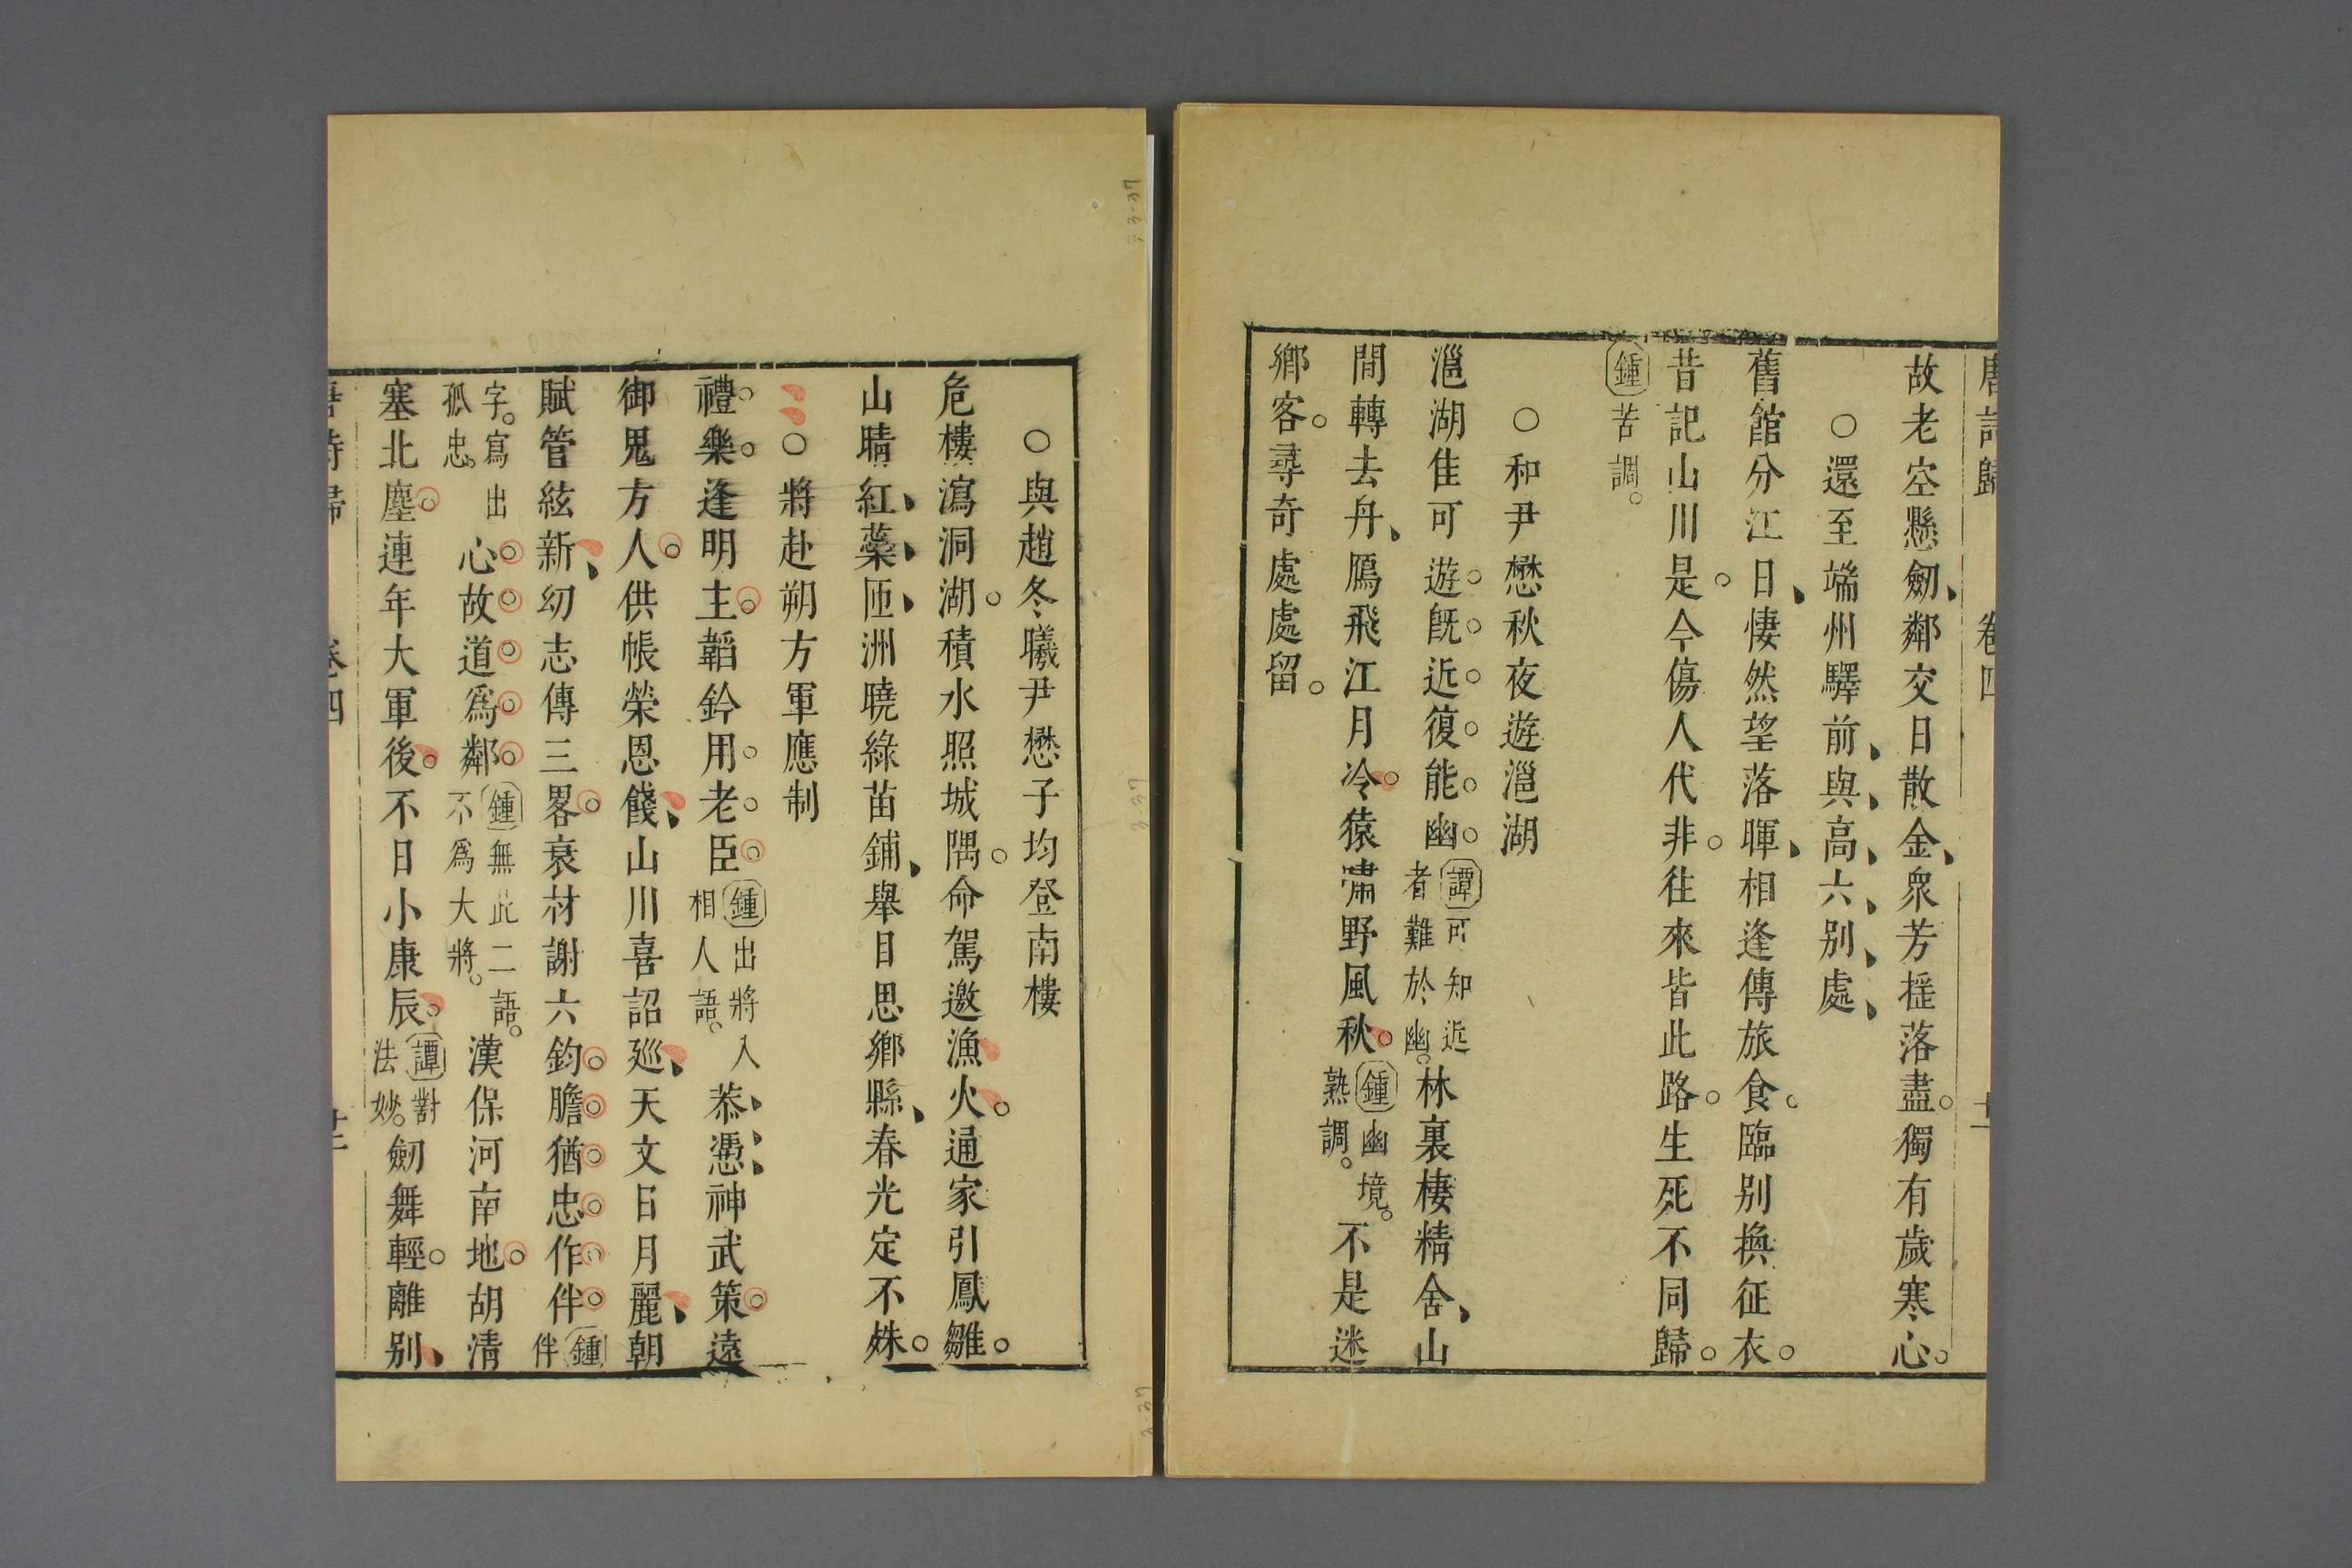 唐詩歸 卷四
故老空懸劒鄰交日散金衆芳搖落盡獨有歲寒心
○還至端州驛前與高六别處
舊館分江日悽然望落暉相逢傳旅食臨别換征衣
昔記山川是今傷人代非往來皆此路生死不同歸
鍾苦調
○和尹懋秋夜遊㴩湖
㴩湖佳可遊旣近復能幽
譚可知近
者難於幽
林裏棲精舍山
間轉去舟鴈飛江月冷猿嘯野風秋
鍾幽境
熟調
不是迷
鄉客尋奇處處留
○與趙冬曦尹懋子均登南樓
危樓瀉洞湖積水照城隅命駕邀漁火通家引鳳雛
山晴紅藥匝洲曉綠苗鋪舉目思鄉縣春光定不姝
○將赴朔方軍應制
禮樂逢明主韜鈐用老臣
鍾出將入
相人語
恭憑神武策遠
御鬼方人供帳榮恩餞山川喜詔廵天文日月麗朝
賦管絃新幼志傳三畧衰材謝六鈞膽猶忠作伴
鍾
伴
字寫出
孤忠
心故道爲鄰
鍾無此二語
不爲大將
漢保河南地胡清
塞北塵連年大軍後不日小康辰
譚對
法妙
劒舞輕離别
唐詩歸 卷四